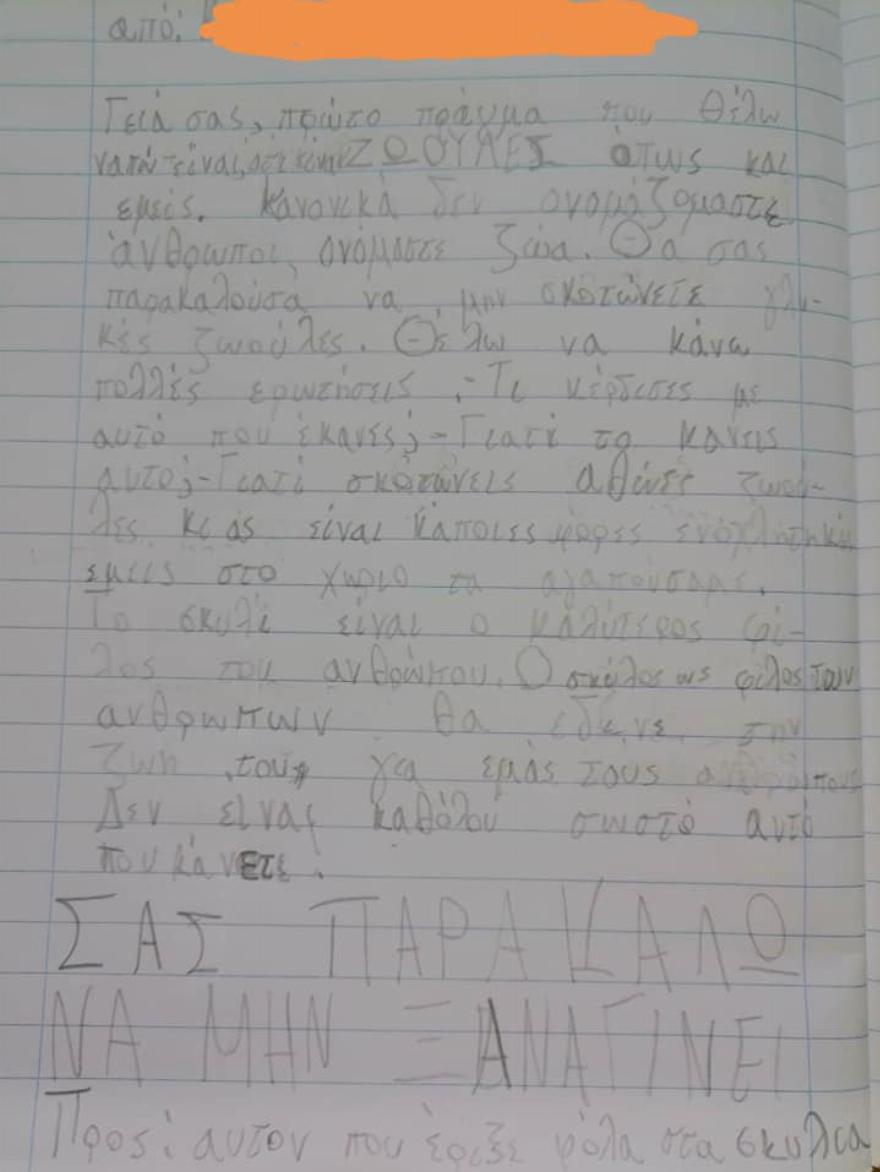 από:
Γειά σας, πρώτο πράγμα που θέλω
να πω είναι, ότι είναι ΖΩΟΥΛΕΣ όπως και
εμείς. Κανονικά δεν ονομάζομαστε
άνθρωποι, ονόμαστε ζώα. Θα σας
παρακαλούσα να μην σκοτώνετε γλυ-
κές ζωούλες. Θέλω να κάνω
πολλές ερωτήσεις :-Τι κέρδισες με
αυτό που έκανες;-Γιατί το κάνεις
αυτό;-Γιατί σκοτώνεις αθώες ζωού-
λες κι ας είναι κάποιες φορές ενοχλητικά
εμείς στο χωριό τα αγαπούσαμε.
Το σκυλί είναι ο καλύτερος φί-
λος του ανθρώπου. Ο σκύλος ως φίλος των
ανθρωπων θα έδεινε την
ζωη του για εμάς τους ανθρώπους
Δεν είναι καθόλου σωστό αυτό
που κάνετε.
ΣΑΣ ΠΑΡΑΚΑΛΩ
ΝΑ ΜΗΝ ΞΑΝΑΓΙΝΕΙ
Προς: αυτον που έριξε φόλα στα σκυλια